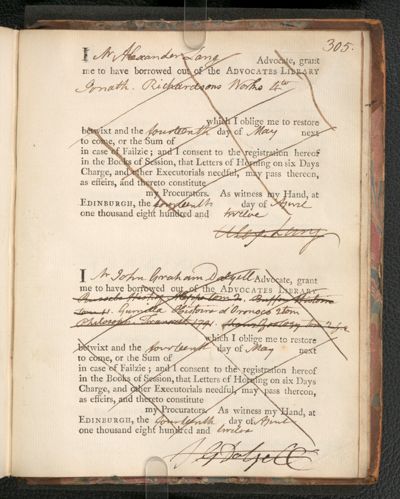 305.
I Mr Alexander Lang Advocate, grant
me to have borrowed out of the ADVOCATES LIBRARY
Jonath. Richardsons Works 4to
which I oblige me to restore
betwixt and the fourteenth day of May next
to come, or the Sum of
in case of Failzie; and I consent to the registration hereof
in the Books of Session, that Letters of Horning on six Days
Charge, and other Executorials needful, may pass thereon,
as effeirs, and thereto constitute
my Procurators. As witness my Hand, at
EDINBURGH, the fourteenth day of April
one thousand eight hundred and twelve
Alexr Lang
I Mr John Graham Dalyell Advocate, grant
me to have borrowed out of the ADVOCATES LIBRARY
Buffon Histoire
Gumilla Histoire d Oronoco 2 tom
Philosoph. Transact
which I oblige me to restore
betwixt and the fourteenth day of May next
to come, or the Sum of
in case of Failzie; and I consent to the registration hereof
in the Books of Session, that Letters of Horning on six Days
Charge, and other Executorials needful, may pass thereon,
as effeirs, and thereto constitute
my Procurators. As witness my Hand, at
EDINBURGH, the fourteenth day of April
one thousand eight hundred and twelve
J G Dalyell